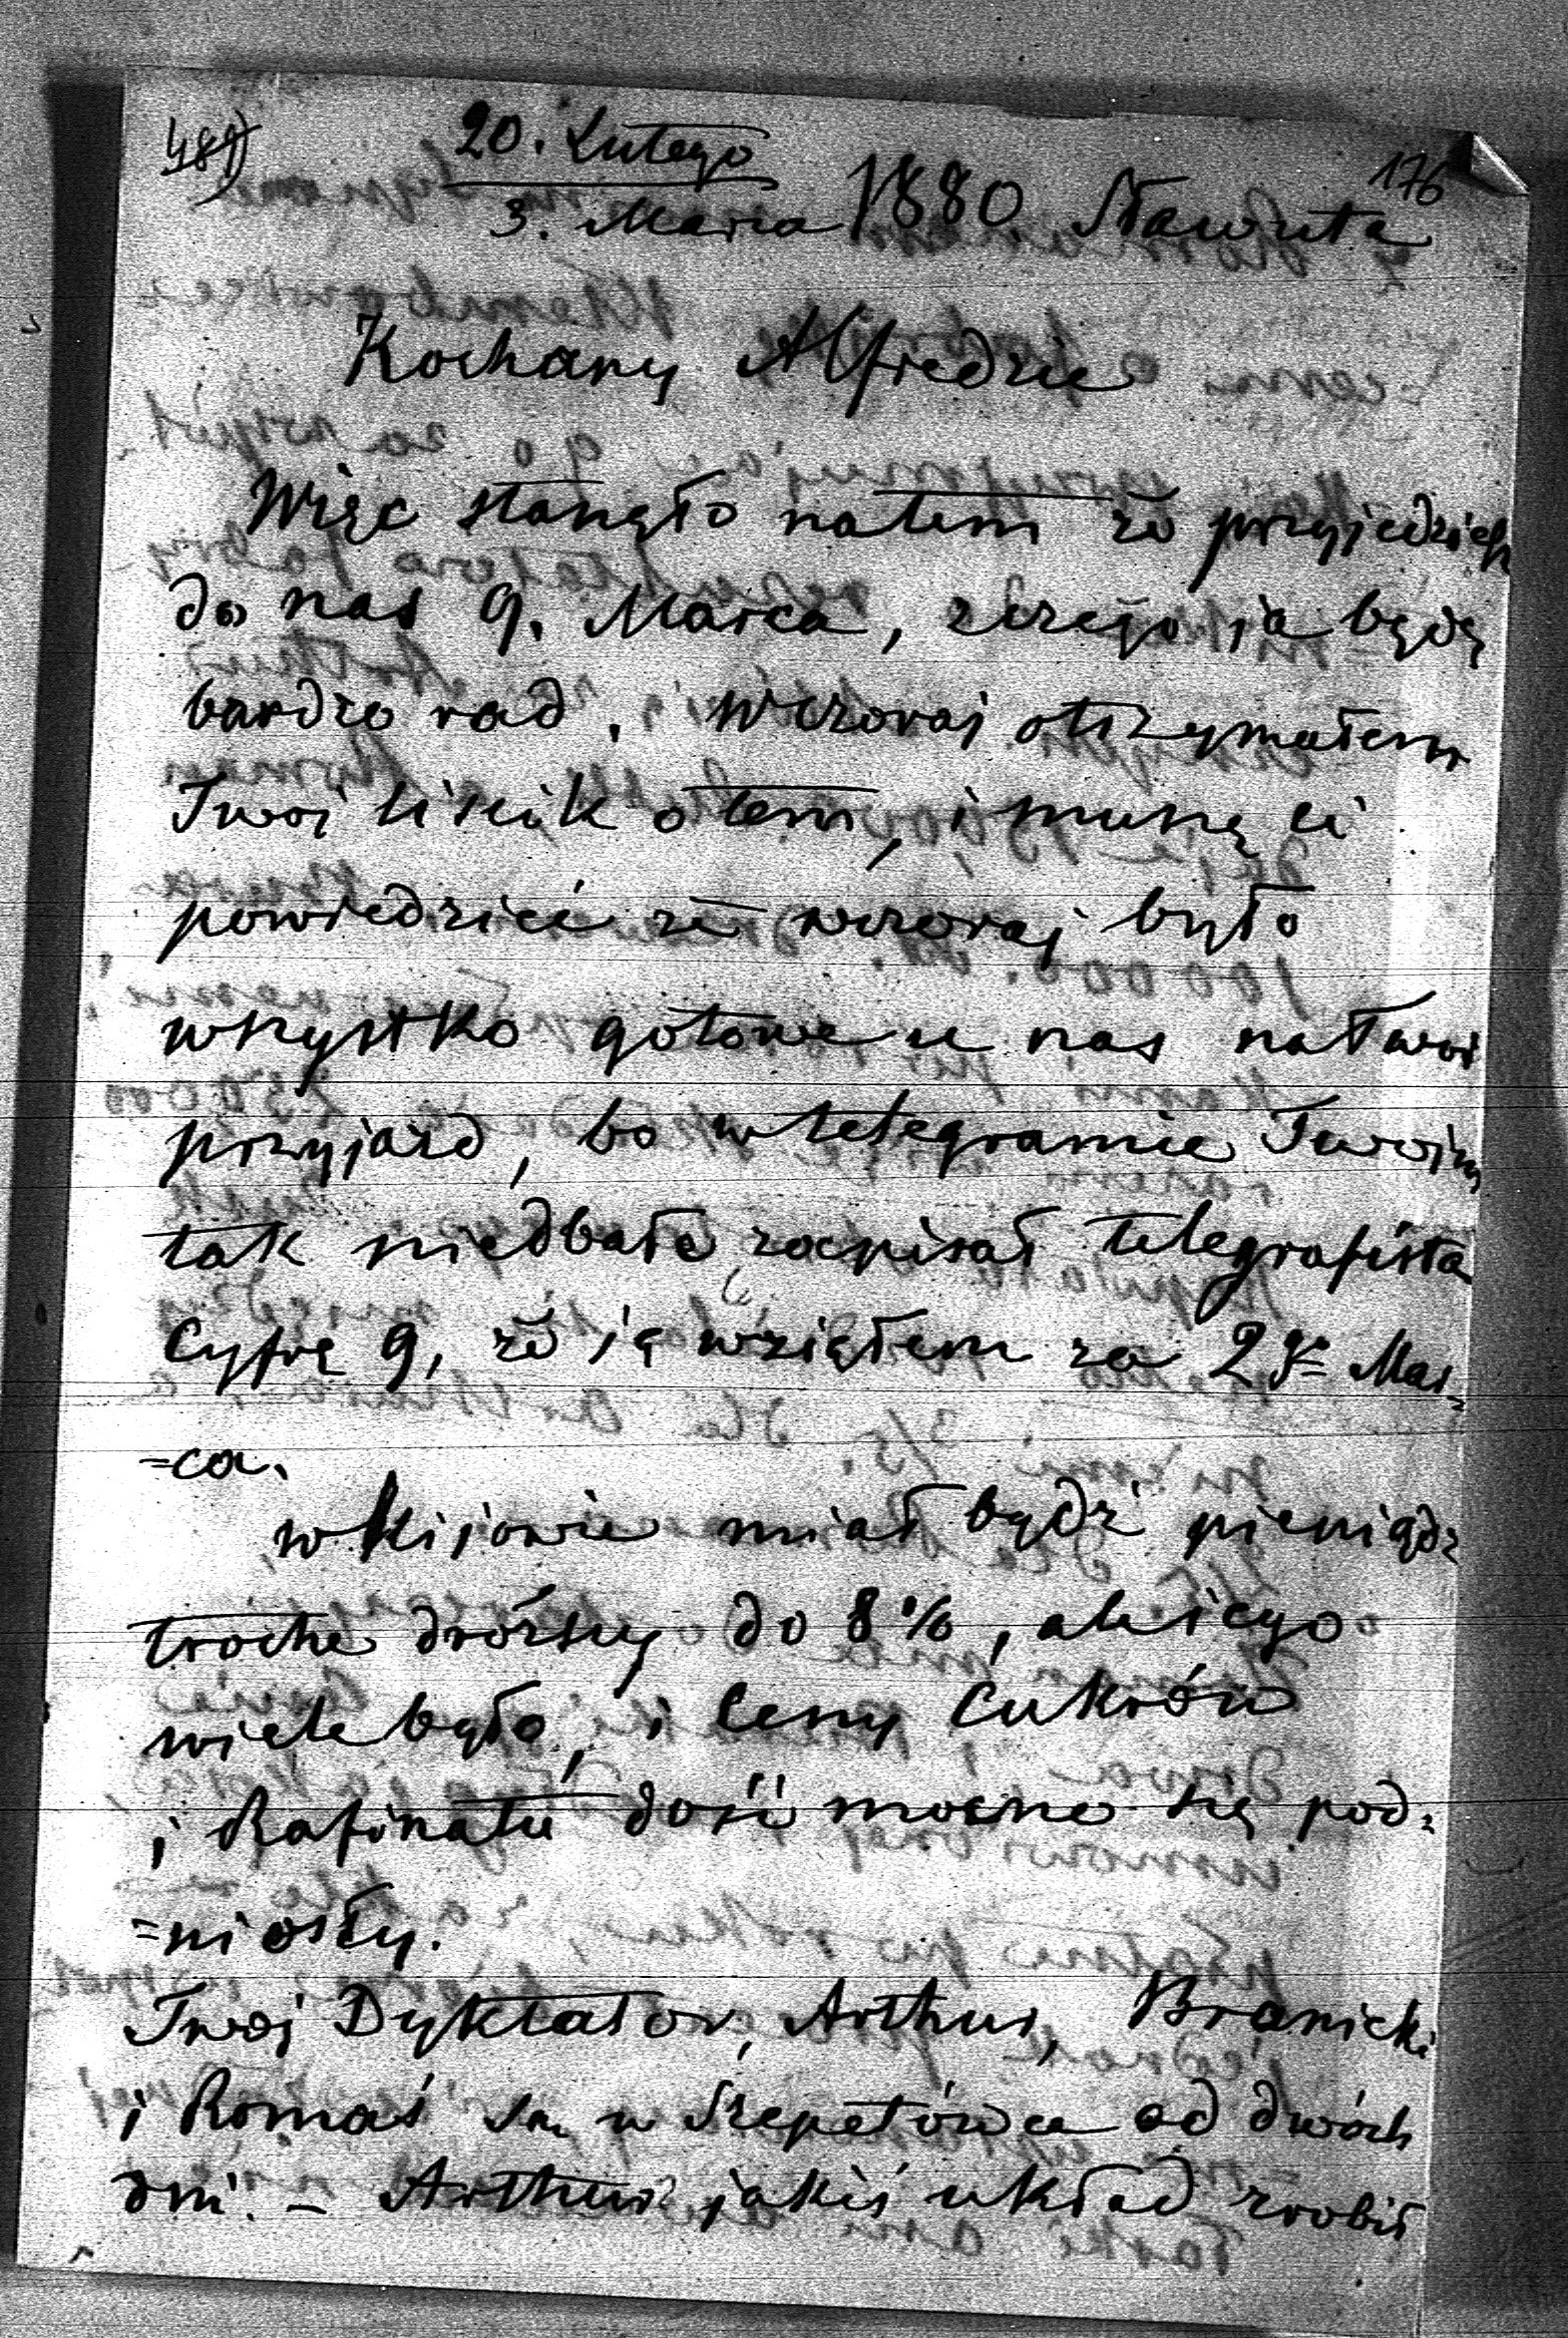 489)
20. Lutego
176
3. Marca 1880 Sławuta
Kochany Alfredzie
Więc stanęło natem że przyjedziesz
do nas 9. Marca, z czego ja będę
bardzo rad. Wczoraj otrzymałem
Twoj liścik o tem, i muszę ci
powiedzieć że wczoraj było
wszystko gotowe u nas na Twoj
przyjazd, bo w telegramie Twoim
tak niedbale zapisał telegrafista
Cyfrę 9, że ją wziąłem za 2go Mar=
=ca.
w Kijowie miał bydź pieniądz
troche dróższy do 8%, ale jego
wiele było, i Ceny Cukrów
i Rafinatu dość mocno się pod=
=niosły.
Twoj Dyktator, Arthur, Branicki
i Romaś są w Szepetówce od dwóch
dni. – Arthur jakiś układ zrobił